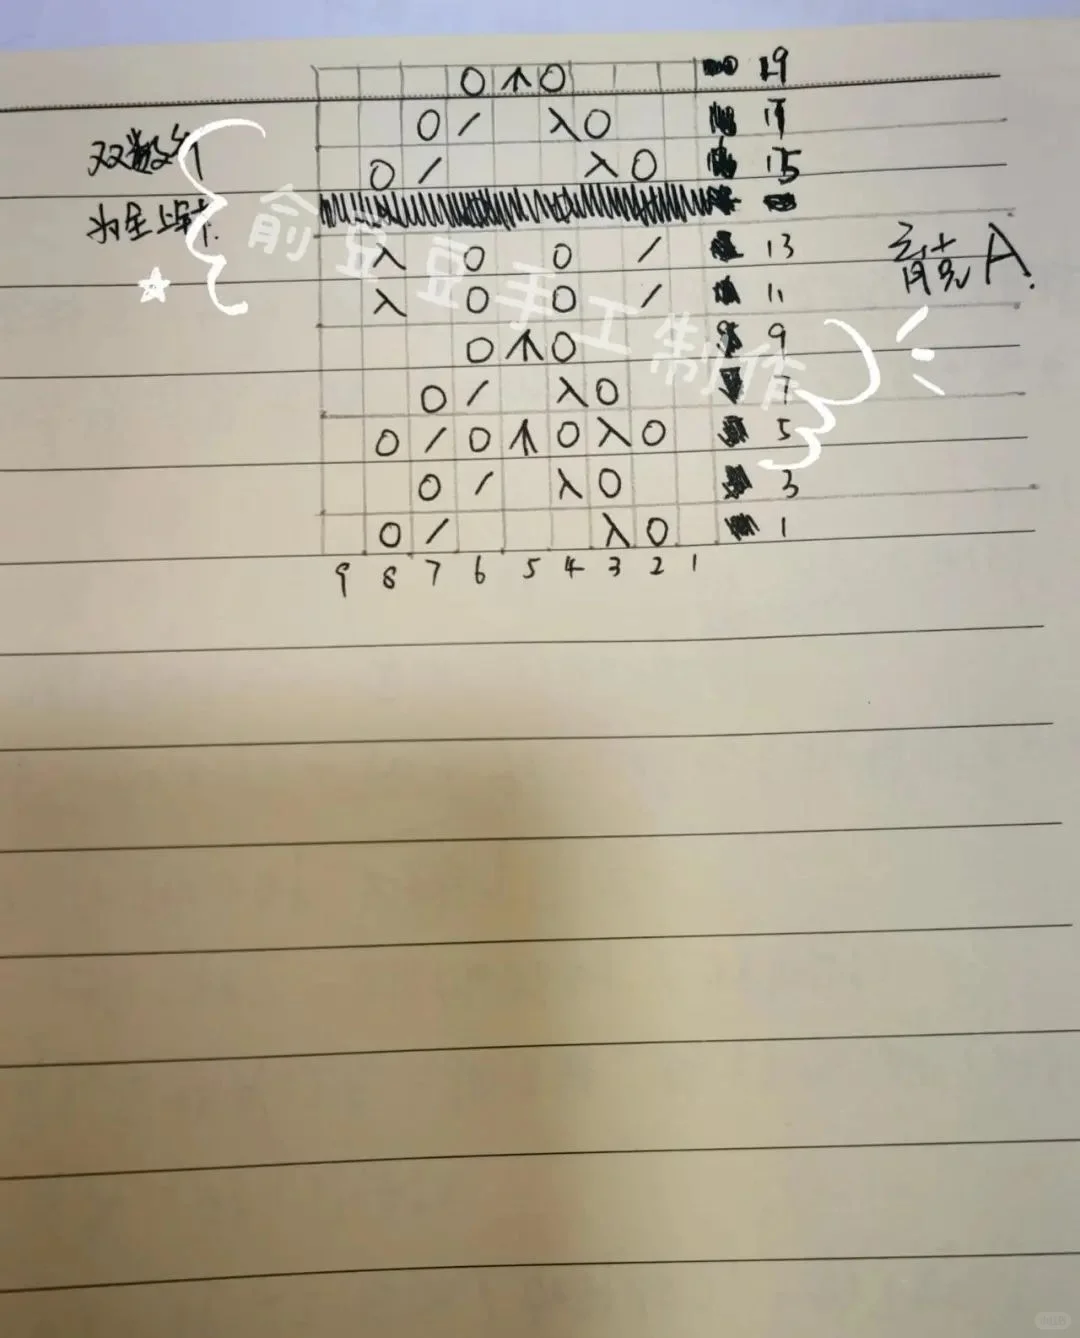 O ⋀ O 19
O / λ O 17
双数行
O / λ O 15
为全上针.
俞豆豆手工制作
λ O O / 13
A.
λ O O / 11
O ⋀ O 9
O / λ O 7
O / O ⋀ O λ O 5
O / λ O 3
O / λ O 1
9 8 7 6 5 4 3 2 1